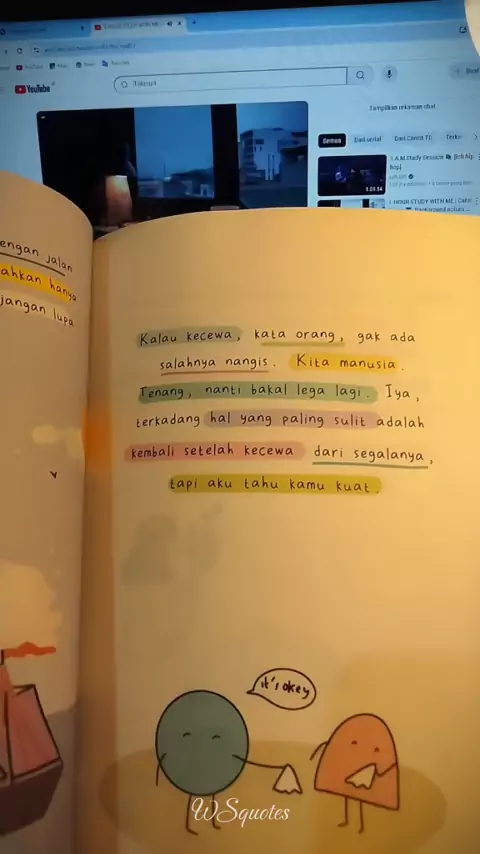 YouTube
Tampilkan rekaman chat
Semua
1 A.M Study Session
1 HOUR STUDY WITH ME
engan jalan
ahkan hanya
jangan lupa
Kalau kecewa, kata orang, gak ada
salahnya nangis. Kita manusia.
Tenang, nanti bakal lega lagi. Iya,
terkadang hal yang paling sulit adalah
kembali setelah kecewa dari segalanya,
tapi aku tahu kamu kuat.
it's okey
WSquotes